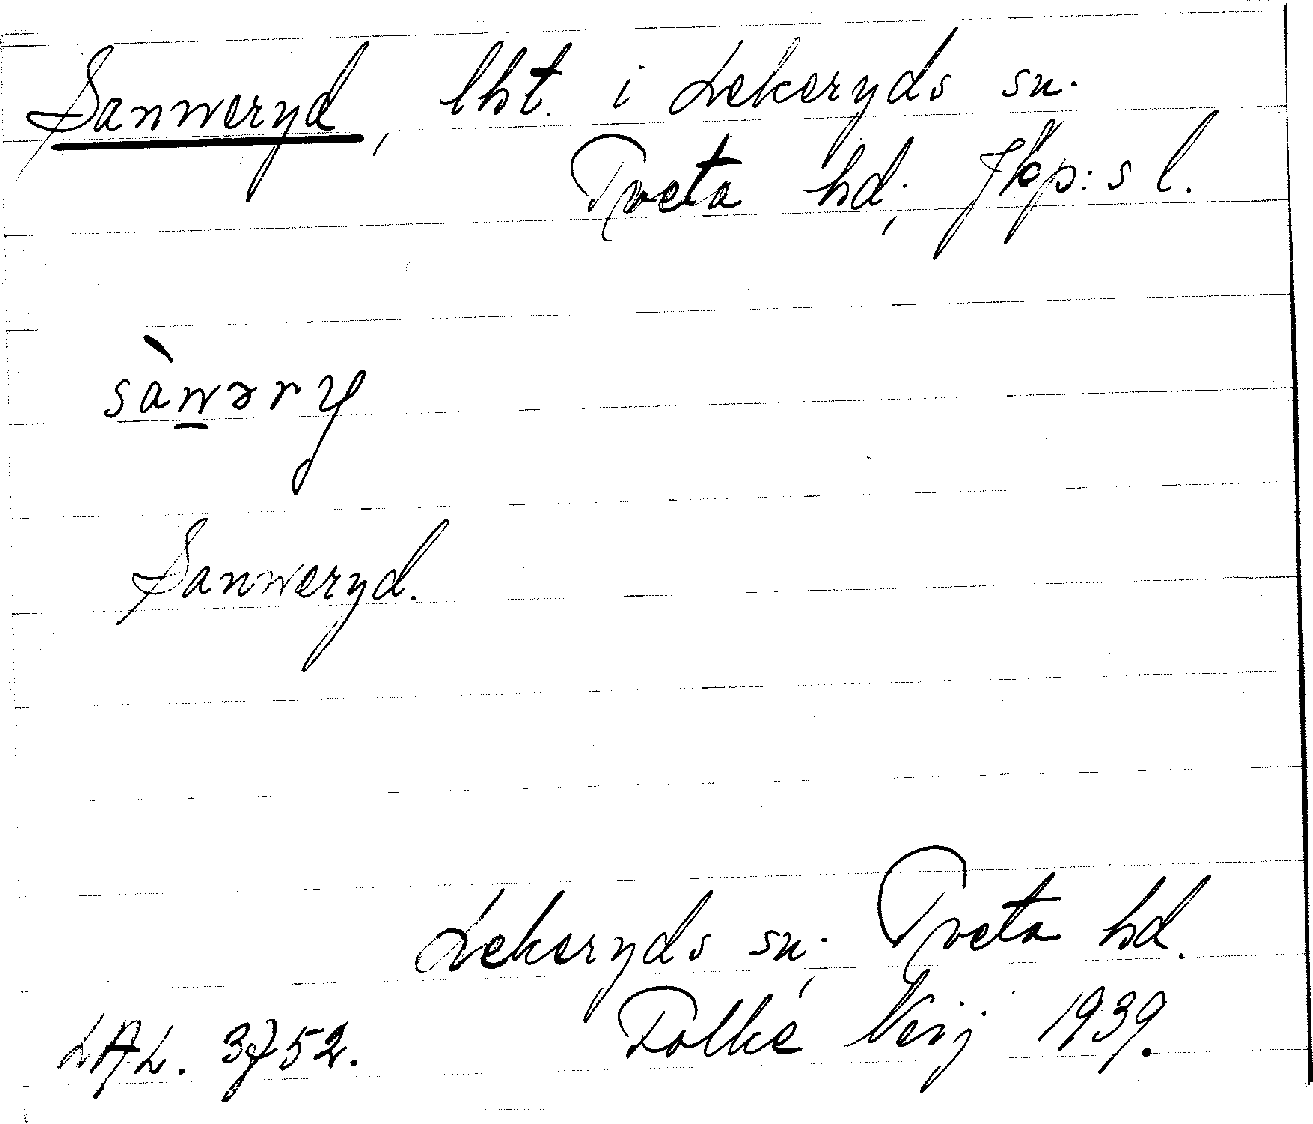 Sanneryd, lht. i Lekeryds sn.
Tveta hd, Jkp:s l.
sànəry
Sanneryd.
Lekeryds sn, Tveta hd.
LAL. 3752. Folke 1939.